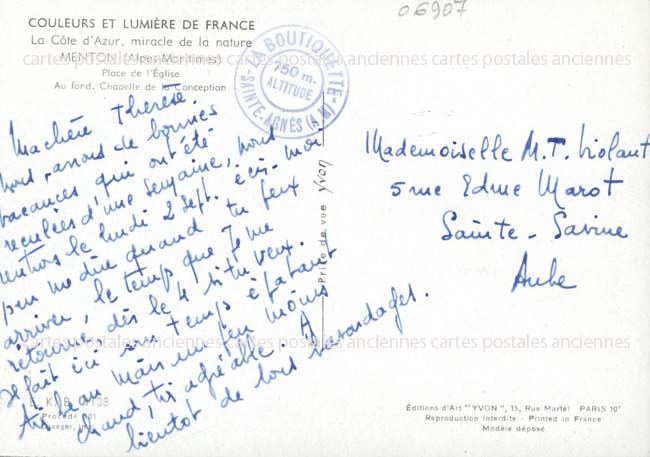 06907
COULEURS ET LUMIÈRE DE FRANCE
La Côte d'Azur, miracle de la nature
MENTON (Alpes-Maritimes)
Place de l'Église
Au fond, Chapelle de la Conception
LA BOUTIQUETTE
750 m.
ALTITUDE
SAINTE-AGNÈS (A.M)
cartes postales anciennes cartes postales anciennes cartes postales anciennes
Ma chère Thérèse.
nous avons de bonnes
vacances qui ont été
reculées d'une semaine, nous
rentrons le lundi 2 sept. écris-moi
pour me dire quand tu peux
arriver, le temps que je me
retourne, dès le 4 si tu veux.
Il fait ici un temps épatant
très beau mais un peu moins
chaud, très agréable. A
bientot de bons bavardages.
Mademoiselle M.T. Violant
5 rue Edme Marot
Sainte-Savine
Aube
Prise de vue Yvon
cartes postales anciennes cartes postales anciennes cartes postales anciennes
E. K. B.
Procédé
Draeger, imp.
Éditions d'Art "YVON", 15, Rue Martel PARIS 10e
Reproduction interdite - Printed in France
Modèle déposé